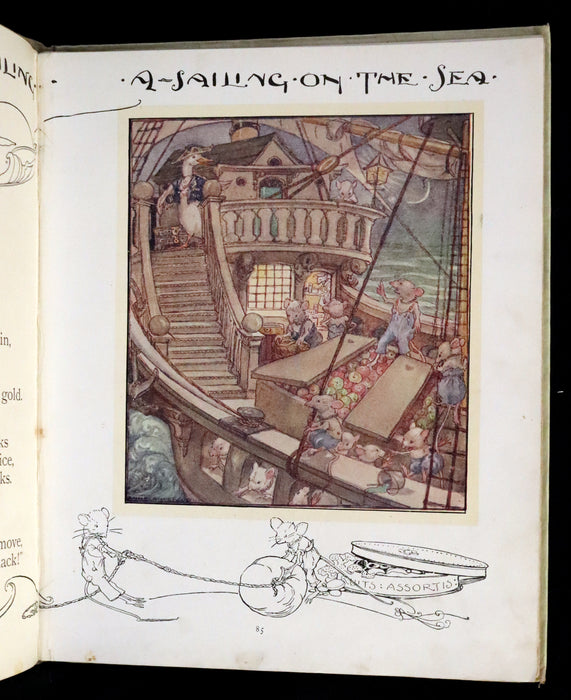 LING
·A·SAILING·ON·THE·SEA·
in,
gold.
ks
ice,
ks.
move,
ack!"
UITS: ASSORTIS:
85